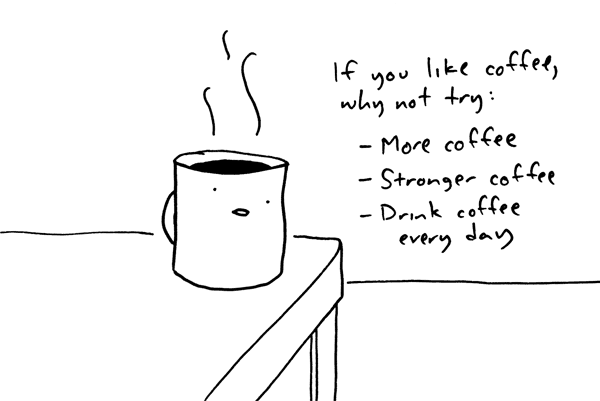 If you like coffee,
why not try:
- More coffee
- Stronger coffee
- Drink coffee
every day